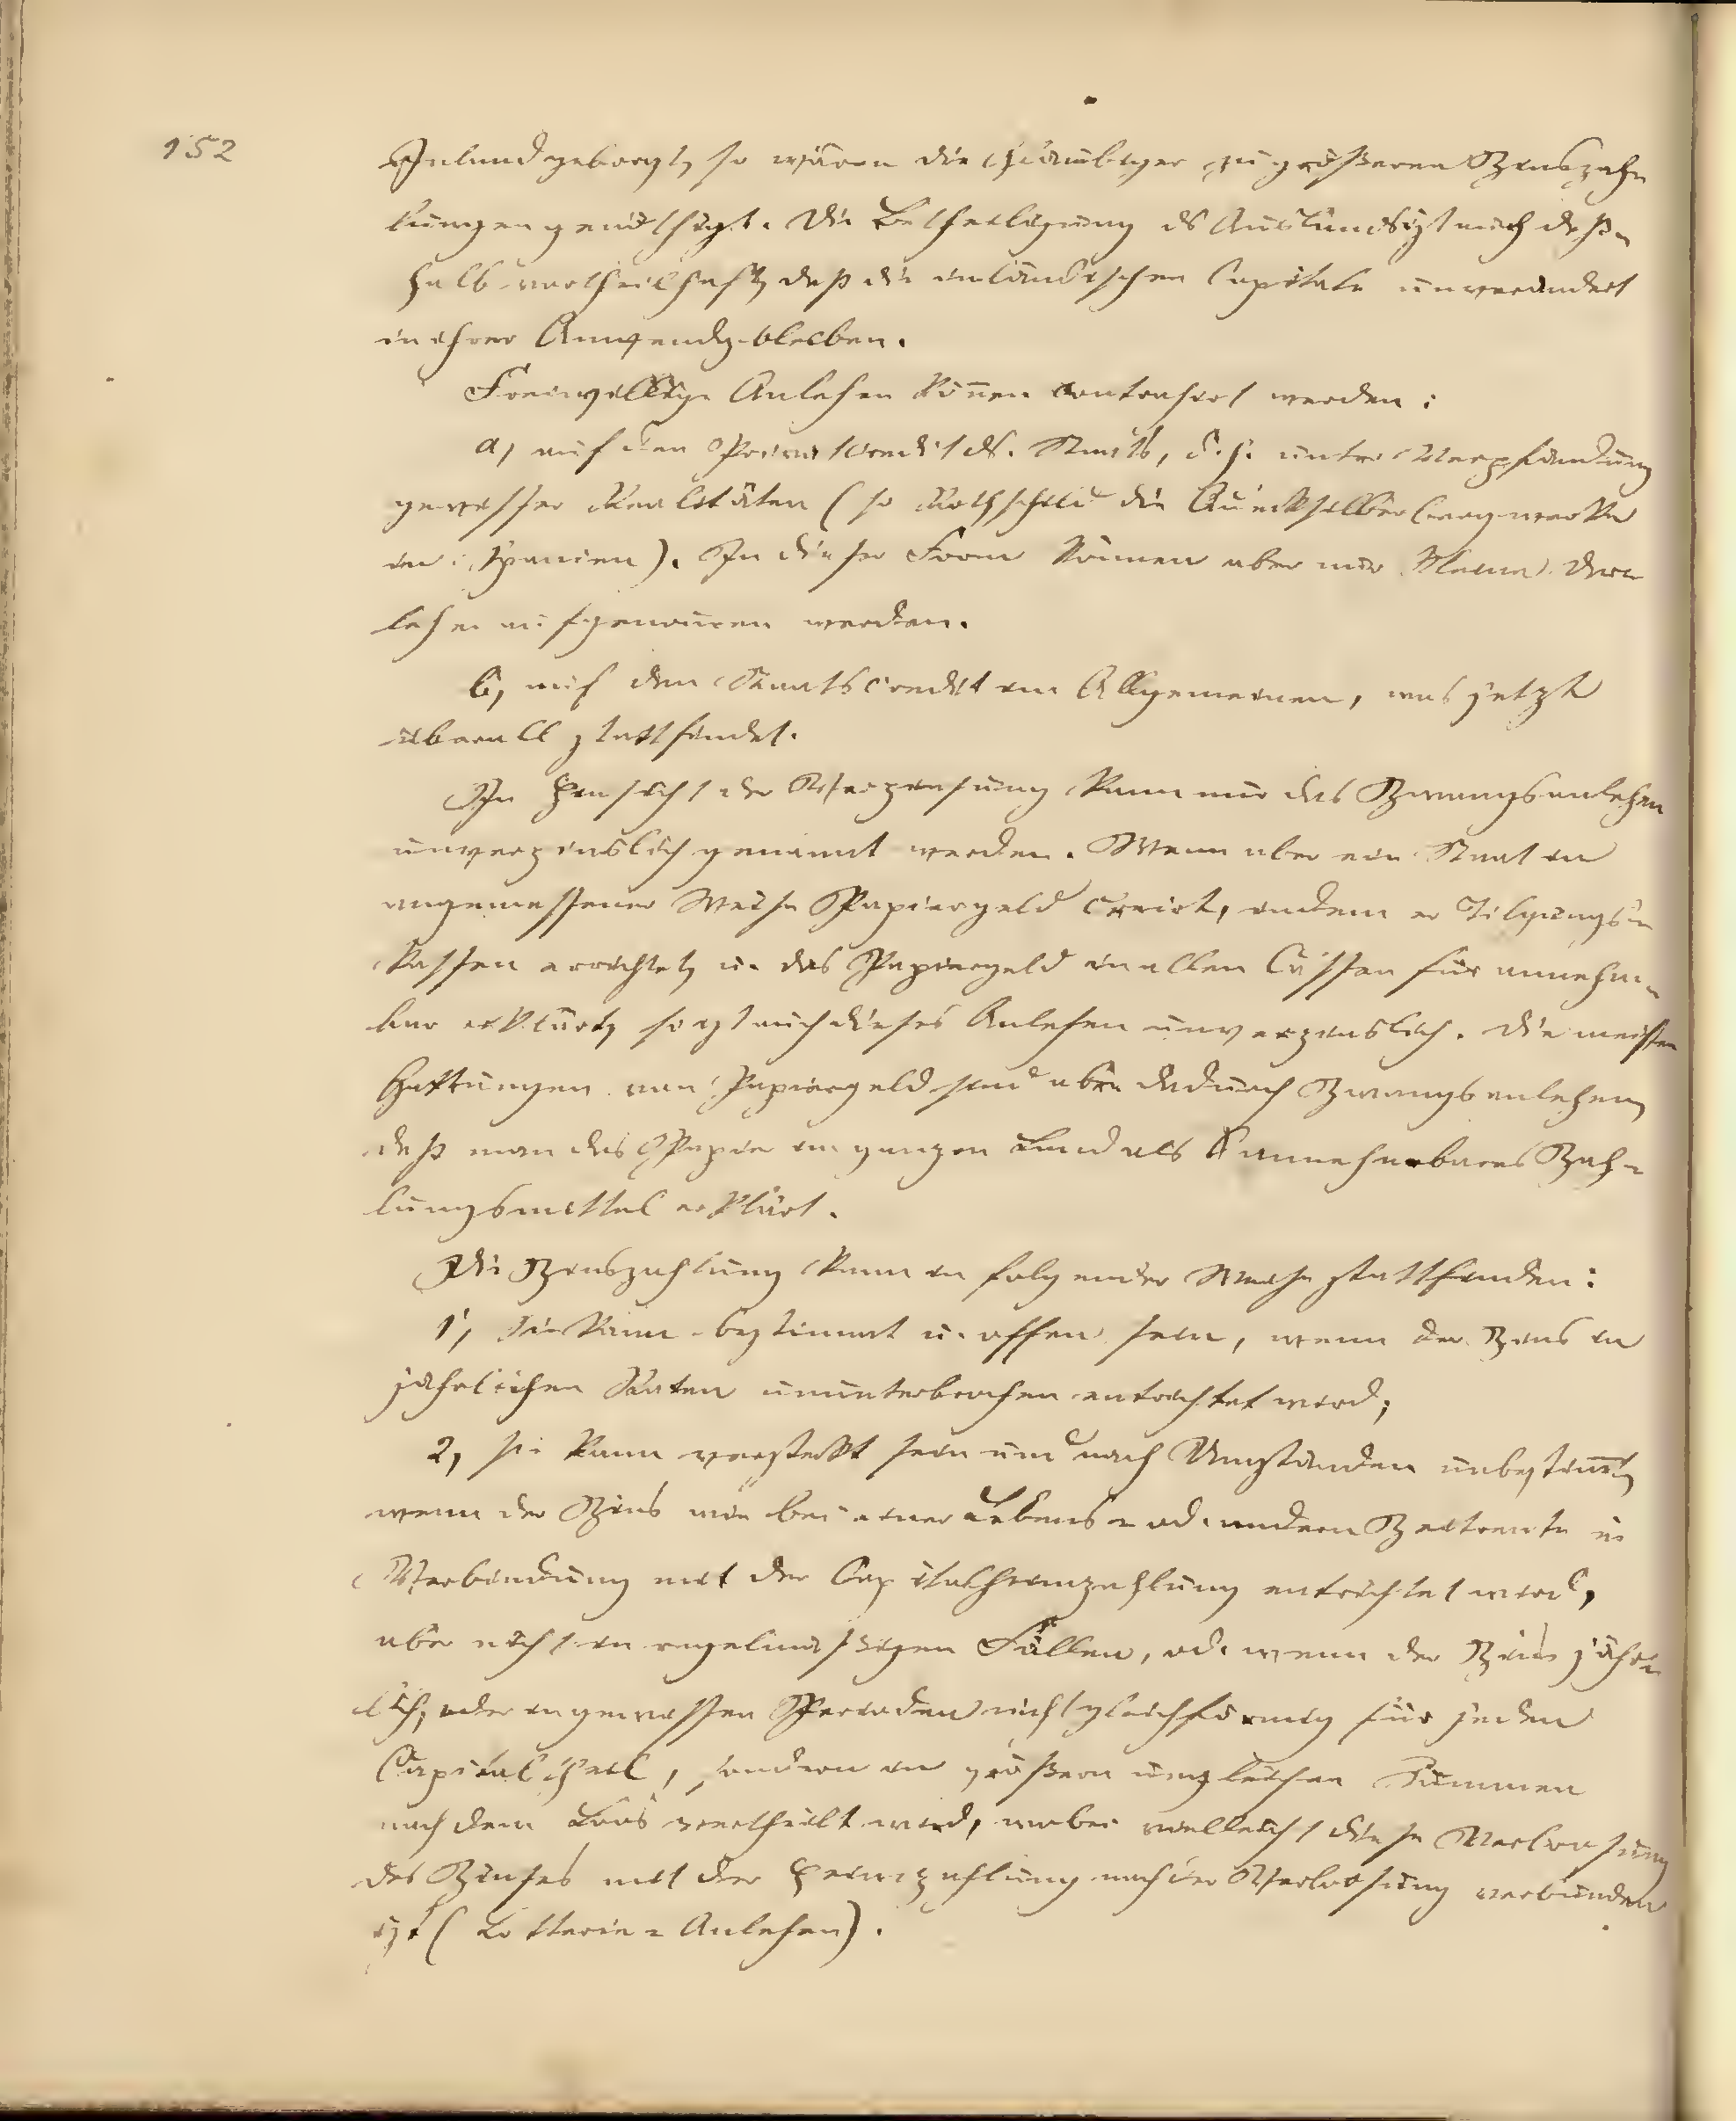 152
Inland geborgt, so wären die Gläubiger zu größeren Zinszah-
lungen genöthigt. Die Betheiligung ds Auslands ist auch deß-
halb vortheilhaft, daß die inländischen Capitale unverändert
in ihrer Anwendg bleiben.
Freiwillige Anlehen können contrahirt werden:
a, auf den Privatcredit ds. Staats, d. h. unter Verpfändung
gewisser Realitäten (so Rothschild die Quecksilberbergwerke
in Spanien). In dieser Form können aber nur kleine Dar-
lehen aufgenommen werden.
b, auf den Staatscredit im Allgemeinen, was jetzt
überall stattfindet.
In Hinsicht der Verzinsung kann nur das Zwangsanlehen
unverzinslich genannt werden. Wenn aber ein Staat in
angemessener Weise Papiergeld creirt, indem er Tilgungs-
kassen errichtet, u. das Papiergeld in allen Cassen für annehm-
bar erklärt, so ist auch dieses Anlehen unverzinslich. Die meisten
Gattungen von Papiergeld sind aber dadurch Zwangsanlehen,
daß man das Papier im ganzen Land als annehmbares Zah-
lungsmittel erklärt.
Die Zinszahlung kann in folgender Weise stattfinden:
1, Sie kann bestimmt u. offen sein, wenn der Zins in
jährlichen Raten ununterbrochen entrichtet wird;
2, sie kann versteckt sein und nach Umständen unbestimmt,
wenn der Zins wie bei einer Lebens- od. andern Zeitrente in
Verbindung mit der Capitalheimzahlung entrichtet wird,
aber nicht in regelmässigen Fällen, od. wenn der Zins jähr-
lich, oder in gewissen Perioden nicht gleichförmig für jeden
Capitaltheil, sondern in größern ungleichen Summen
nach dem Loos vertheilt wird, wobei vielleicht diese Verloosung
des Zinses mit der Heimzahlung nach der Verloosung verbunden
ist (Lotterie-Anlehen).